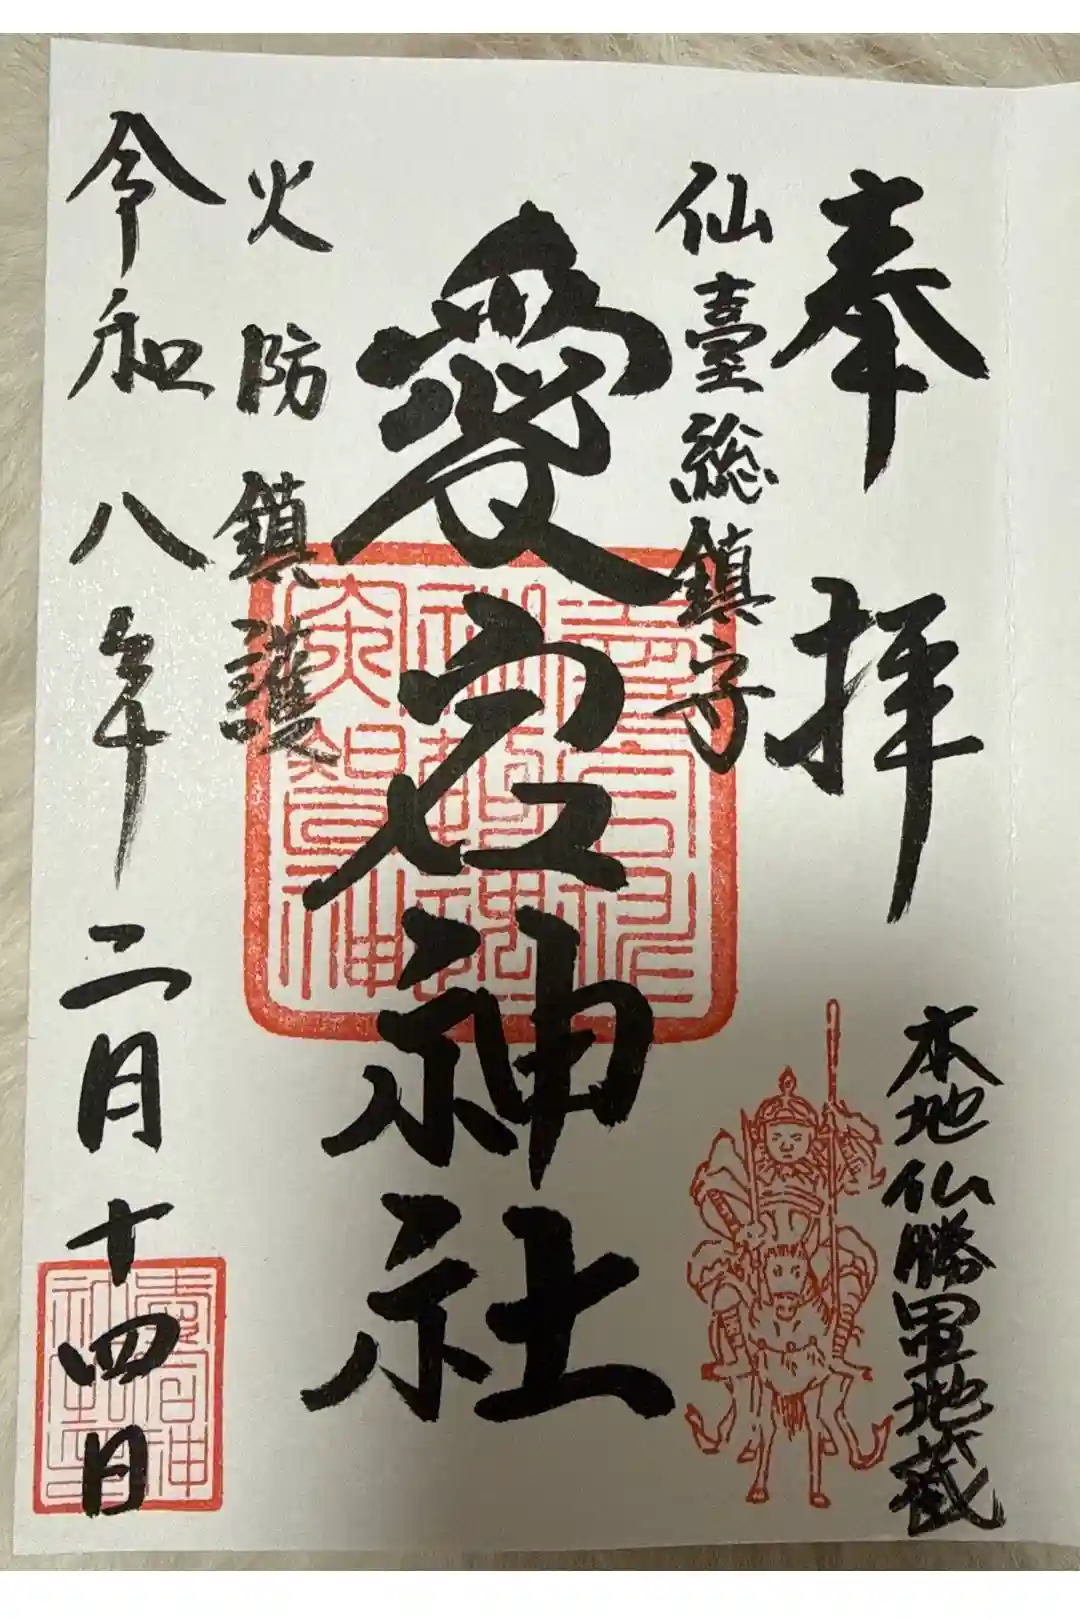 奉拝
仙臺総鎮守
愛宕神社
火防鎮護
令和八年二月十四日
本地仏勝軍地蔵